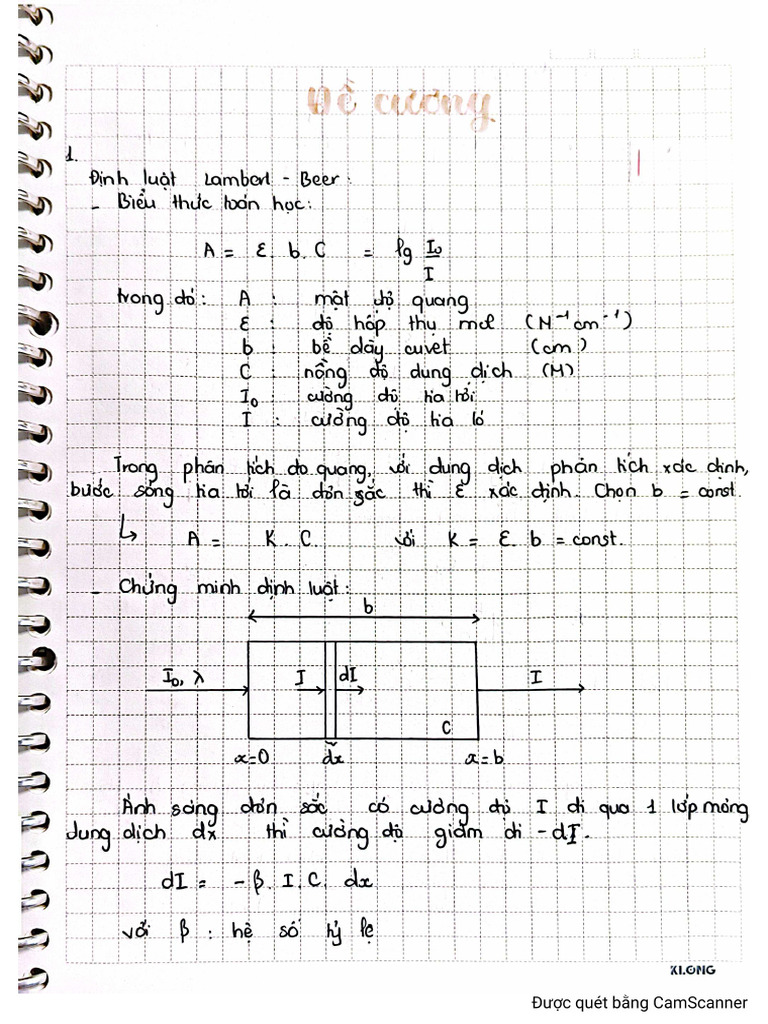 Đề cương
1.
Định luật Lambert - Beer:
- Biểu thức toán học:
A = ε. b. C = lg I₀/I
trong đó: A : mật độ quang
ε : độ hấp thụ mol (M⁻¹cm⁻¹)
b : bề dày cuvet (cm)
C : nồng độ dung dịch (M)
I₀ : cường độ tia tới
I : cường độ tia ló
Trong phân tích đo quang, với dung dịch phân tích xác định,
bước sóng tia tới là đơn sắc thì ε xác định. Chọn b = const.
↳ A = K. C. với K = ε. b = const.
- Chứng minh định luật:
b
I₀, λ I dI I
C
x=0 dx x=b
Ánh sáng đơn sắc có cường độ I đi qua 1 lớp mỏng
dung dịch dx thì cường độ giảm đi -dI.
dI = -β. I. C. dx
với β : hệ số tỷ lệ
KLONG
Được quét bằng CamScanner